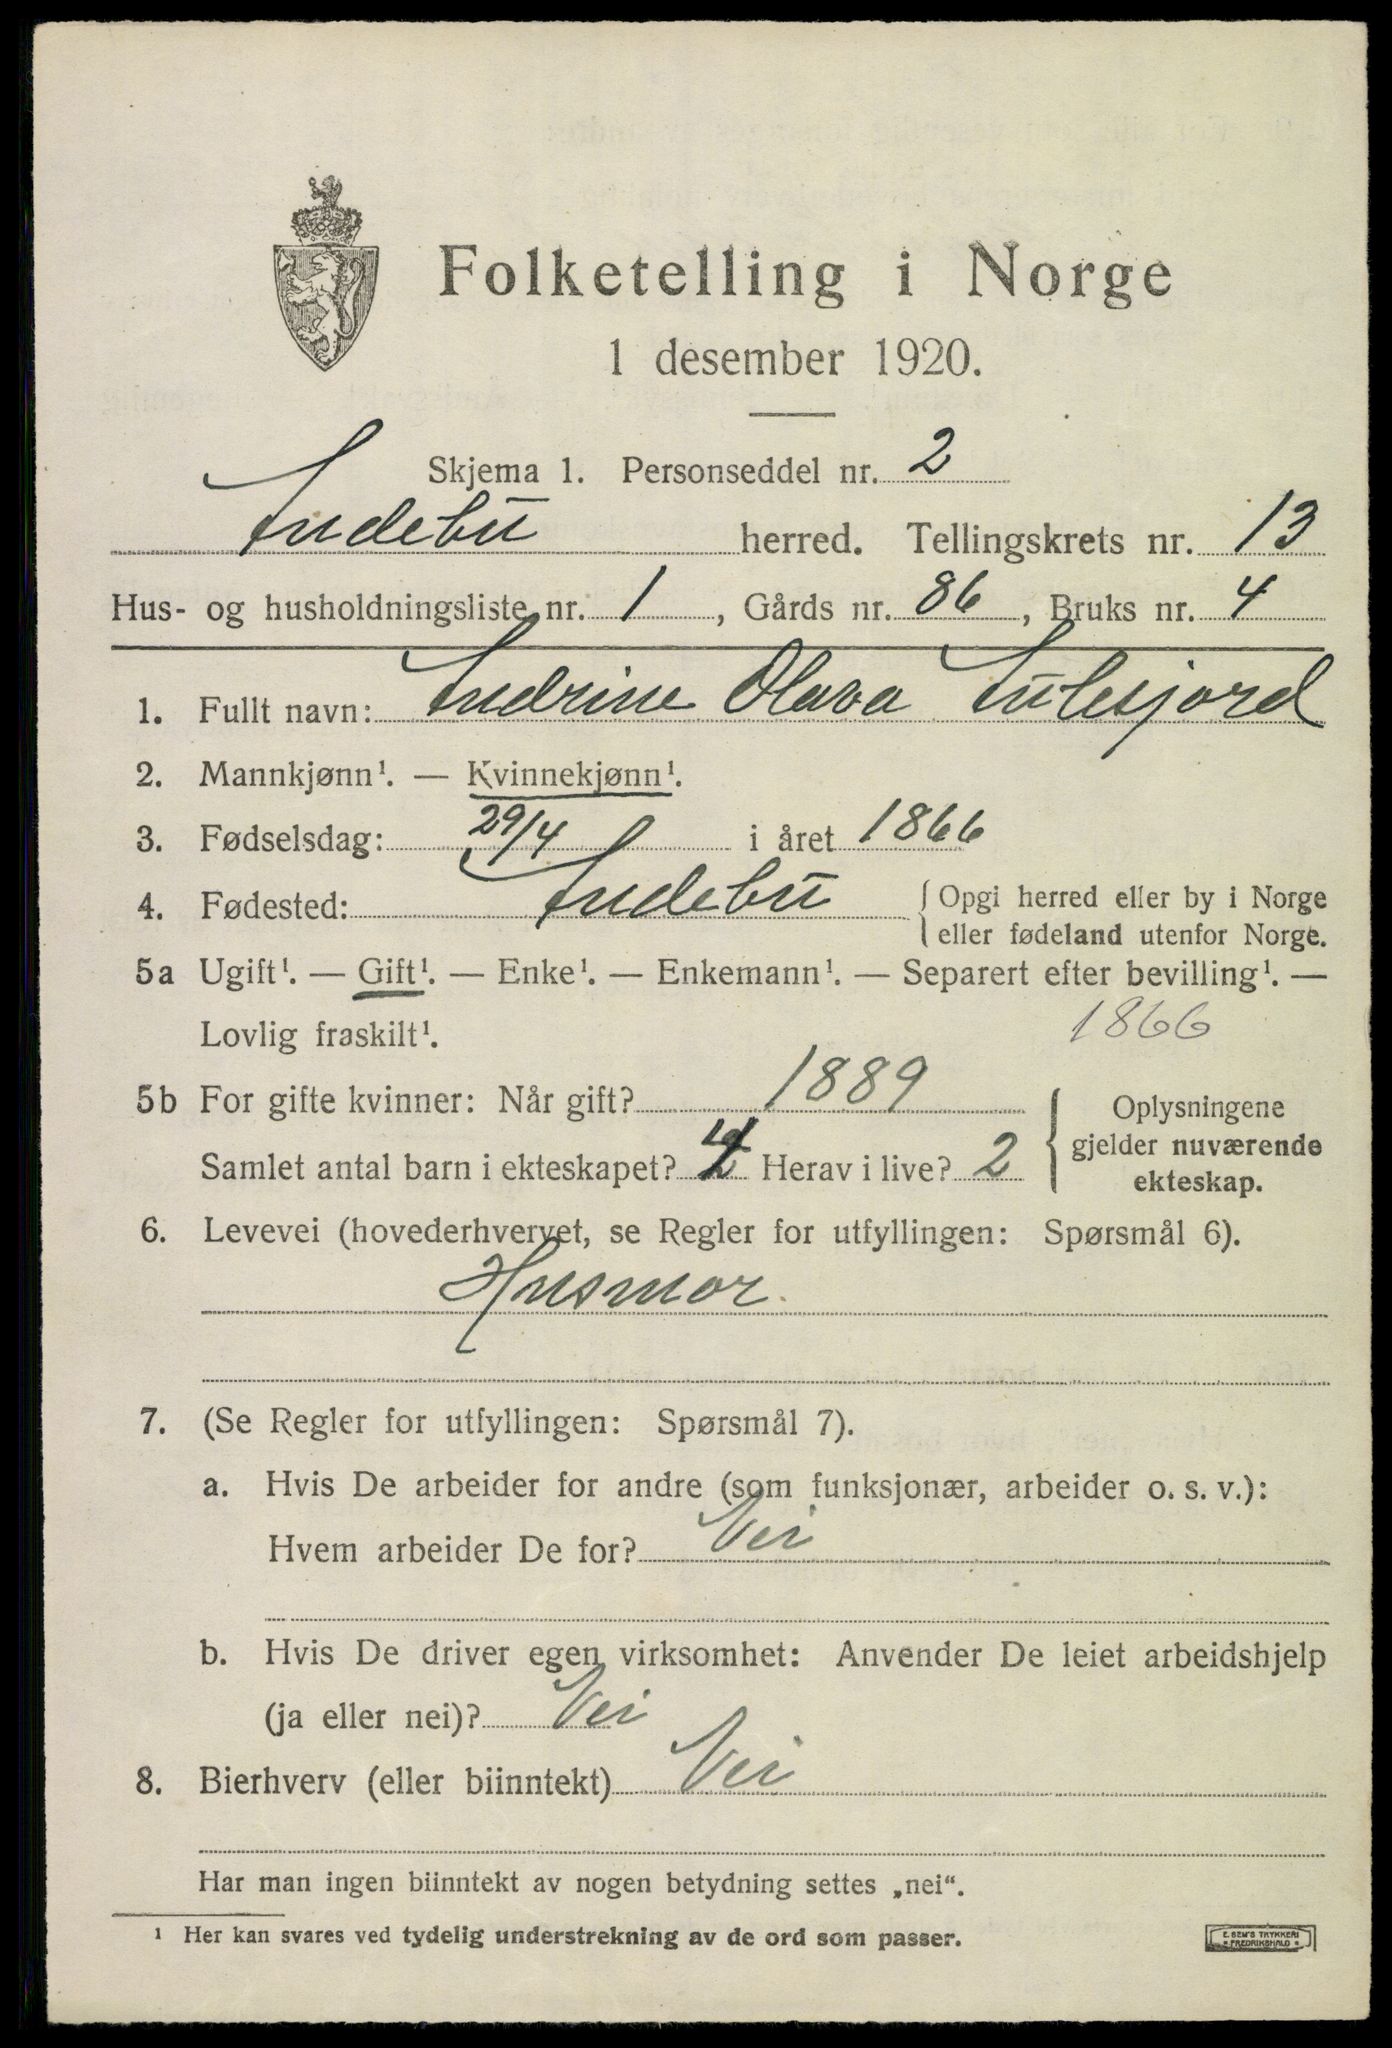 Folketelling i Norge
1 desember 1920.
Skjema 1. Personseddel nr. 2
Andebu herred. Tellingskrets nr. 13
Hus- og husholdningsliste nr. 1, Gårds nr. 86, Bruks nr. 4
1. Fullt navn: Andrine Olava Aulesjord
2. Mannkjønn¹. — Kvinnekjønn¹.
3. Fødselsdag: 29/4 i året 1866
4. Fødested: Andebu { Opgi herred eller by i Norge
eller fødeland utenfor Norge.
5a Ugift¹. — Gift¹. — Enke¹. — Enkemann¹. — Separert efter bevilling¹. —
Lovlig fraskilt¹. 1866
5b For gifte kvinner: Når gift? 1889
Samlet antal barn i ekteskapet? 4 Herav i live? 2
{ Oplysningene
gjelder nuværende
ekteskap.
6. Levevei (hovederhvervet, se Regler for utfyllingen: Spørsmål 6).
Husmor.
7. (Se Regler for utfyllingen: Spørsmål 7).
a. Hvis De arbeider for andre (som funksjonær, arbeider o. s. v.):
Hvem arbeider De for? Nei
b. Hvis De driver egen virksomhet: Anvender De leiet arbeidshjelp
(ja eller nei)? Nei
8. Bierhverv (eller biinntekt) Nei
Har man ingen biinntekt av nogen betydning settes „nei“.
¹ Her kan svares ved tydelig understrekning av de ord som passer.
E. SEM'S TRYKKERI
FREDRIKSHALD